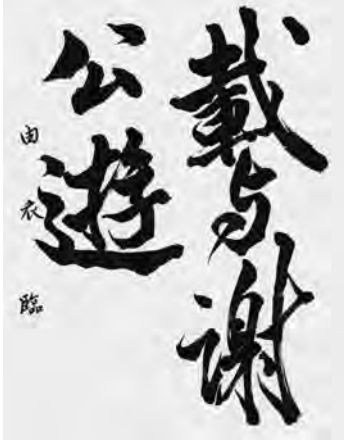 載与謝
公遊
由衣臨